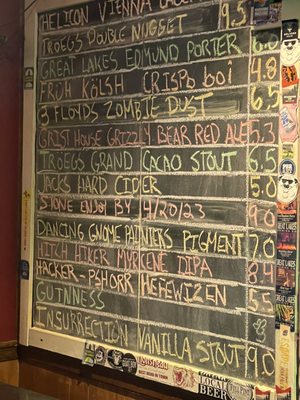 HELICON VIENNA 9.5
TROEGS DOUBLE NUGGET
GREAT LAKES EDMUND PORTER 6.0
FRÜH KÖLSH CRISPO boi 4.8
3 FLOYDS ZOMBIE DUST 6.5
GRIST HOUSE GRIZZLY BEAR RED ALE 5.3
TROEGS GRAND CACAO STOUT 6.5
JACKS HARD CIDER 5.0
STONE ENJOY BY 4/20/23 9.0
DANCING GNOME PAINTERS PIGMENT 7.0
HITCH HIKER MYRCENE DIPA 8.4
HACKER-PSHORR HEFEWIZEN 5.5
GUINNESS
INSURRECTION VANILLA STOUT 9.0
LOCAL
BEER